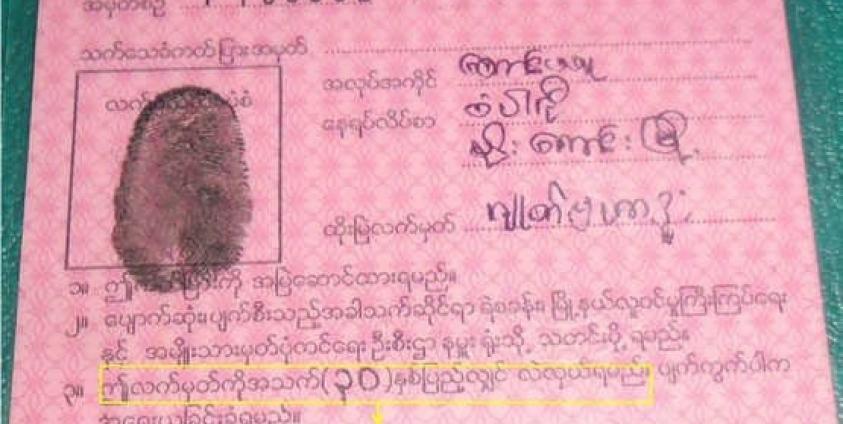 အမှတ်စဉ်
သက်သေခံကတ်ပြားအမှတ်
လက်
အလုပ်အကိုင် ကျောင်းသူ
နေရပ်လိပ်စာ
မိုးကောင်းမြို့
ထိုးမြဲလက်မှတ်
၁။ ဤ ကို အမြဲဆောင်ထားရမည်။
၂။ ပျောက်ဆုံးပျက်စီးသည့်အခါသက်ဆိုင်ရာ ရဲစခန်း၊ မြို့နယ်လူဝင်မှုကြီးကြပ်ရေး
နှင့် အမျိုးသားမှတ်ပုံတင်ရေး ဦးစီးဌာနမှူးရုံးသို့ သတင်းပို့ရမည်။
၃။ ဤလက်မှတ်ကိုအသက်(၃၀)နှစ်ပြည့်လျှင် လဲလှယ်ရမည်။ ပျက်ကွက်ပါက
အရေးယူခြင်းခံရမည်။